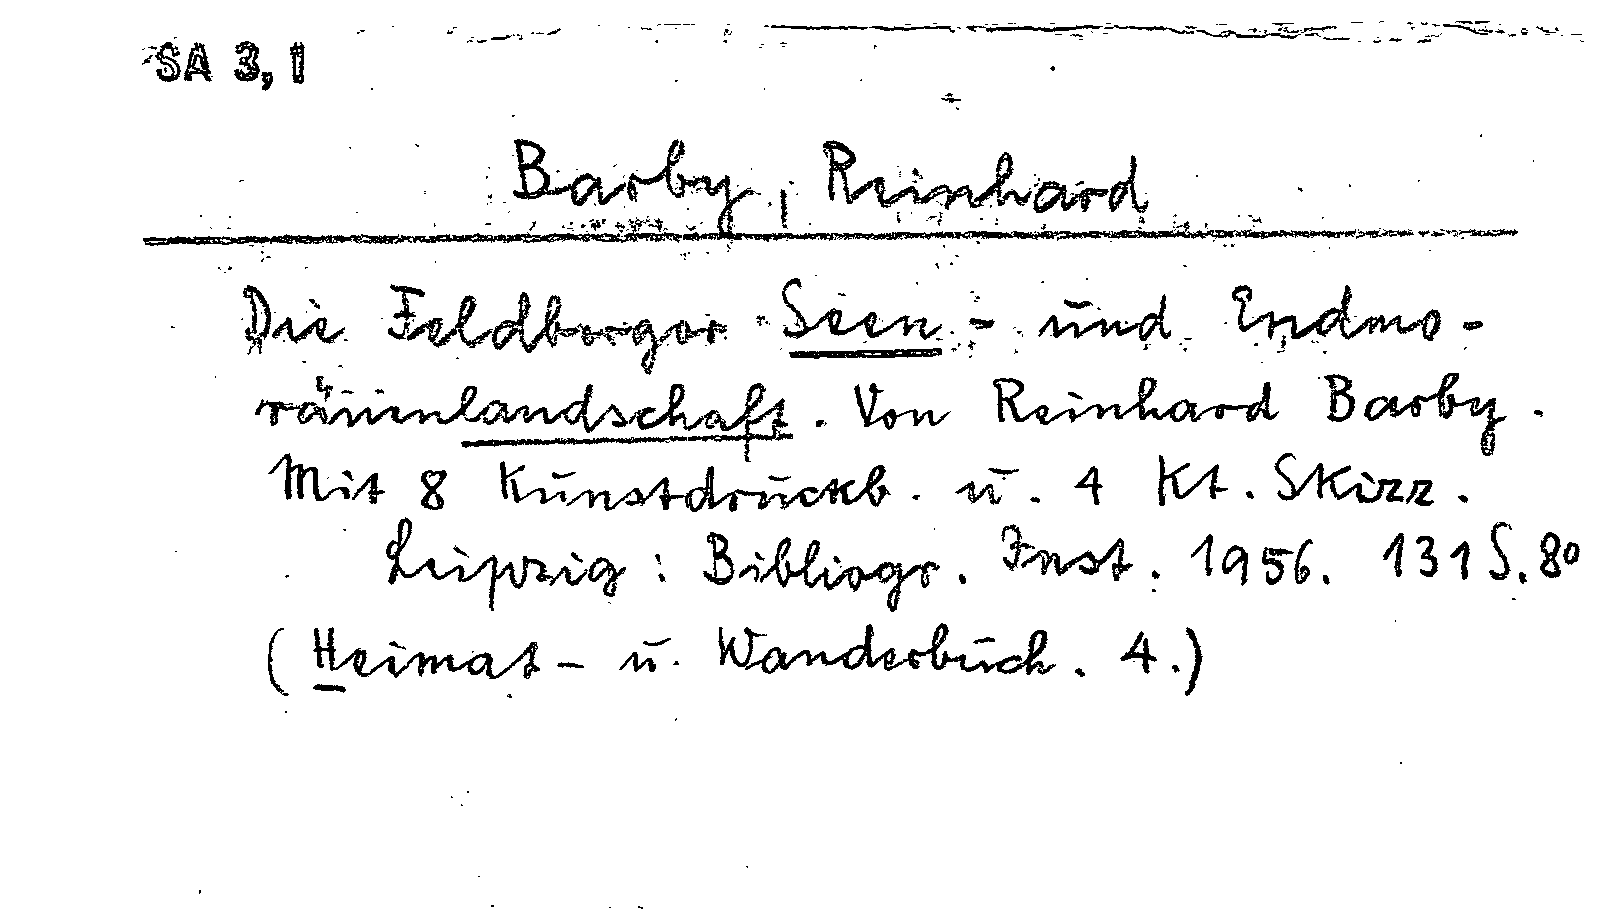 SA 3, 1
Barby, Reinhard
Die Feldberger Seen- und Endmo-
ränenlandschaft. Von Reinhard Barby.
Mit 8 Kunstdruckb. u. 4 Kt. Skizz.
Leipzig: Bibliogr. Inst. 1956. 131 S. 8°
(Heimat- u. Wanderbuch. 4.)